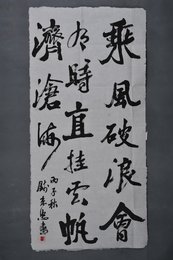 乘风破浪會
有時直挂雲帆
濟滄海
丙子秋